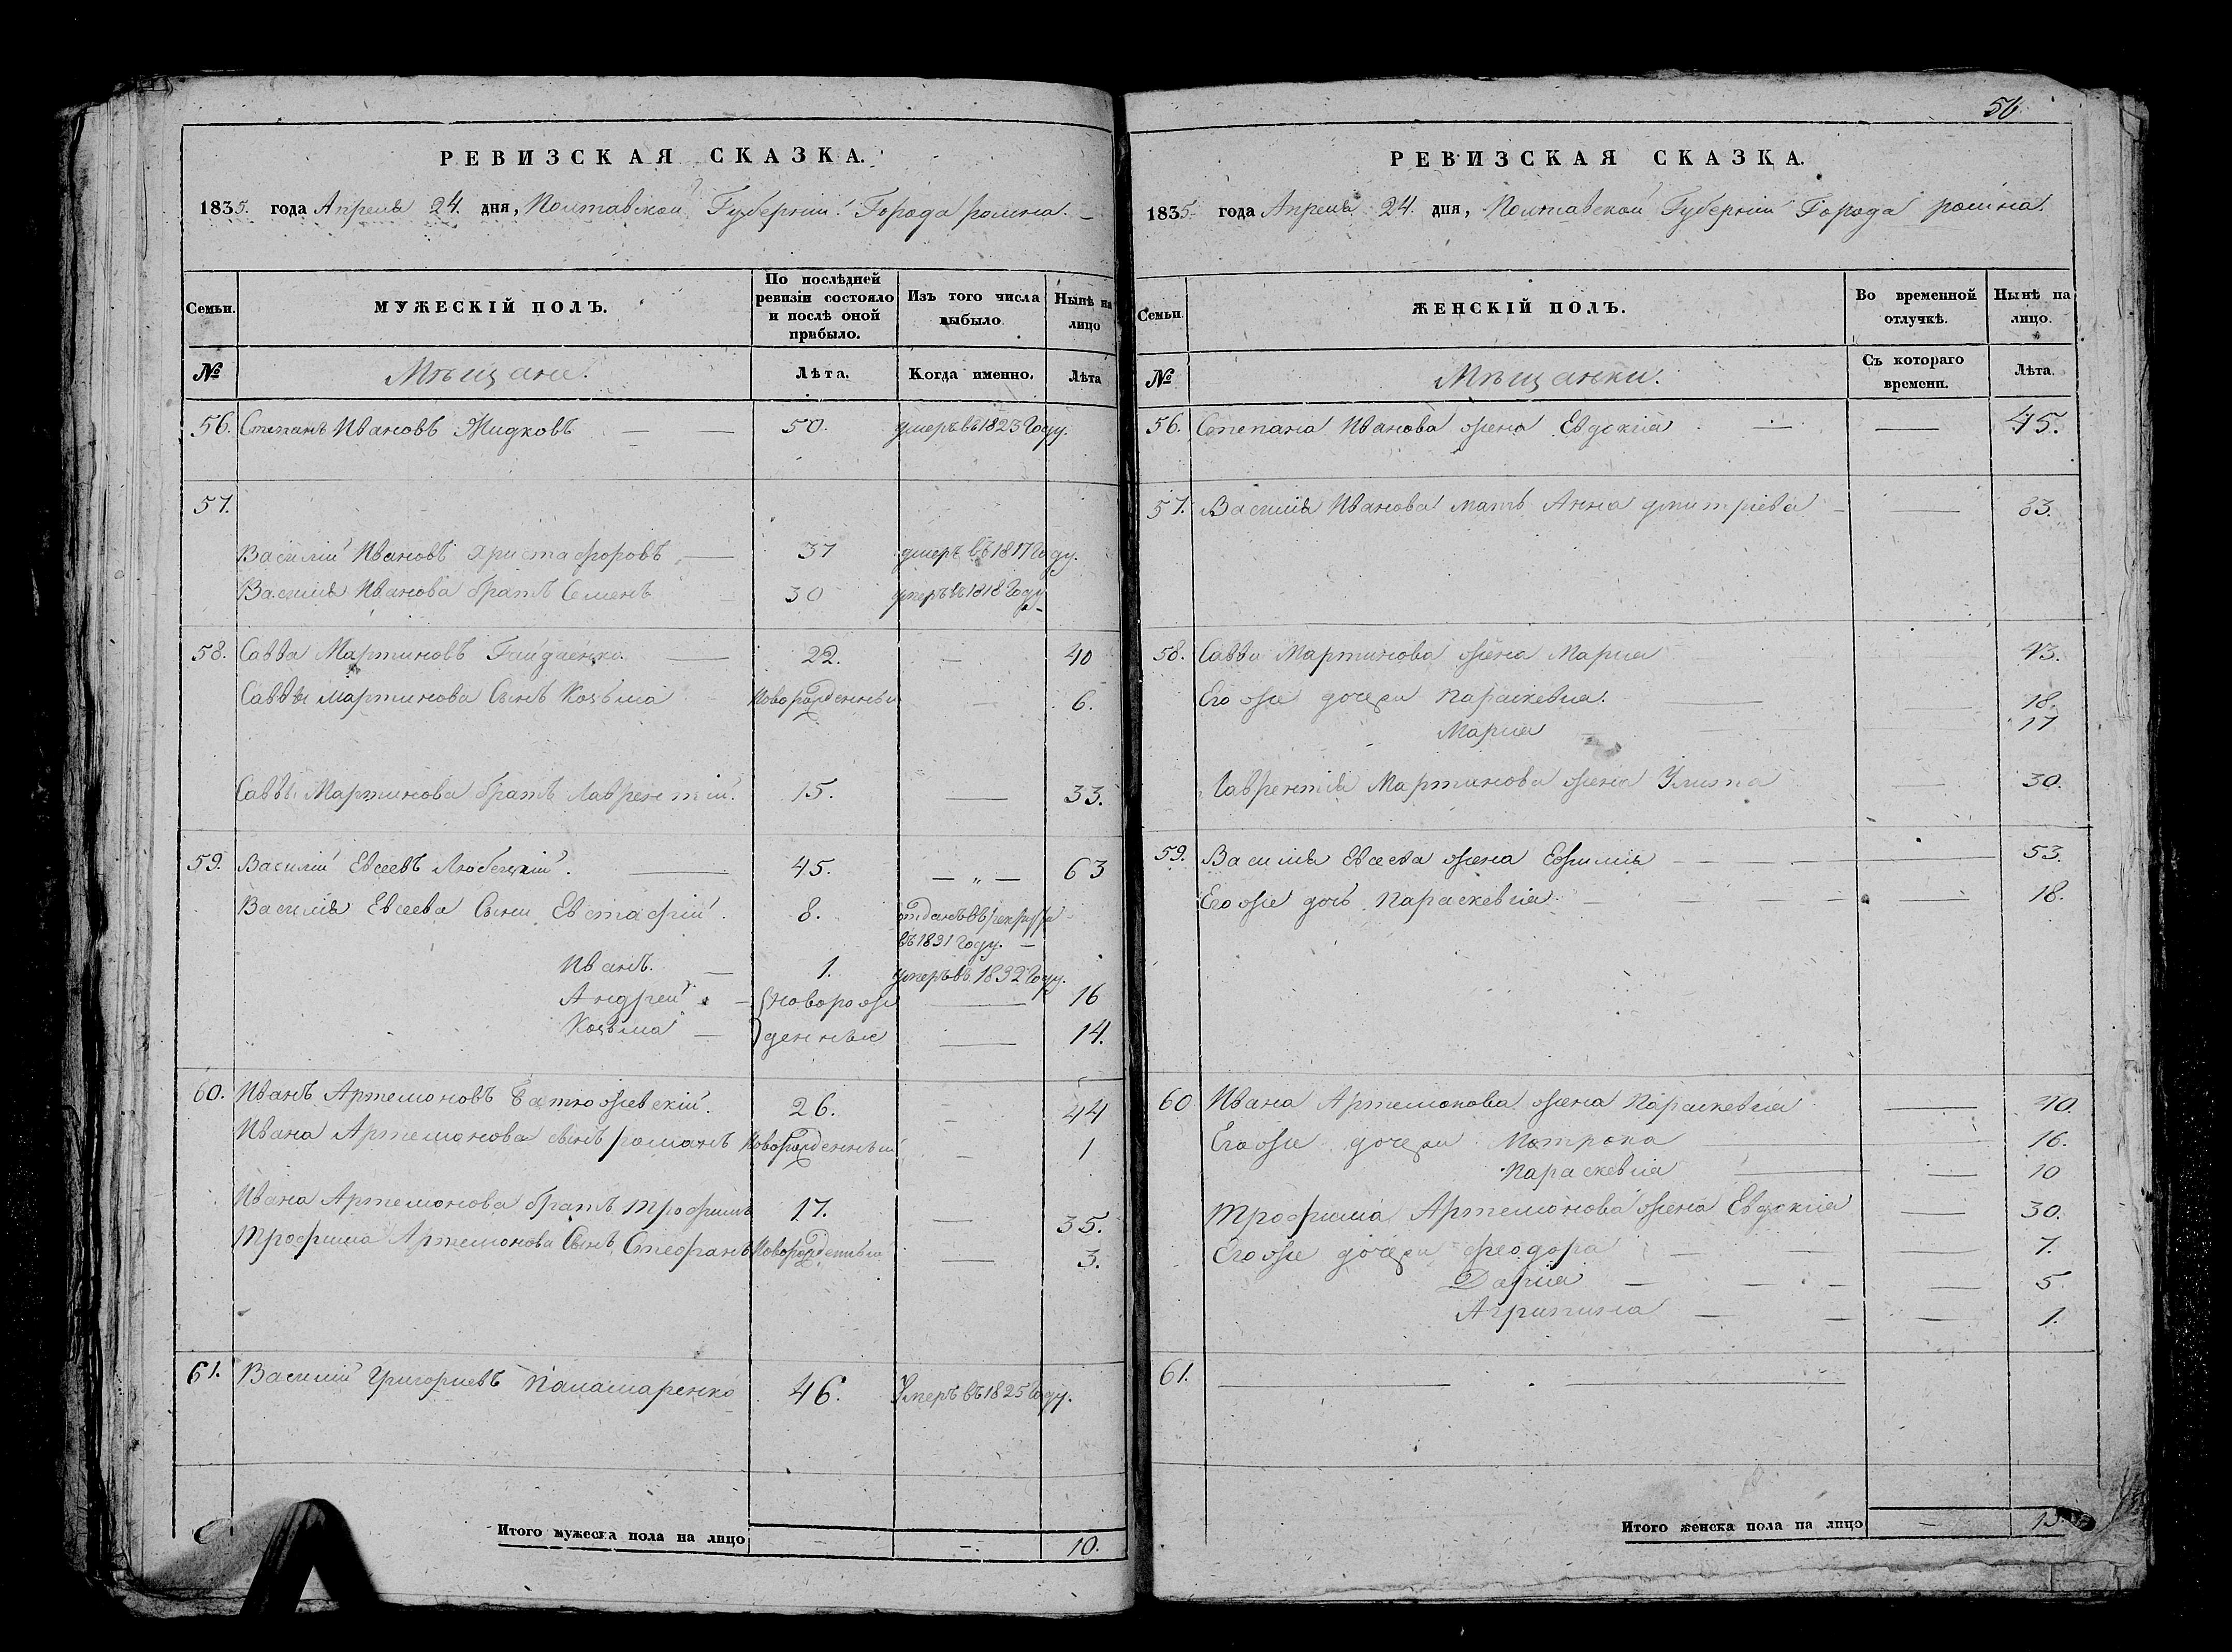 РЕВИЗСКАЯ СКАЗКА.
1835. года Апреля 24. дня, Полтавской Губернiи Города ромна.
Семьи. МУЖЕСКІЙ ПОЛЪ. По послѣдней ревизіи состояло и послѣ оной прибыло. Изъ того числа выбыло Нынѣ на лицо
№ Мѣщане. Лѣта. Когда именно. Лѣта
56. Степанъ Ивановъ Жидковъ — — 50. умеръ въ 1823 Году.
57.
Василiй Ивановъ Христафоровъ — 37 умеръ въ 1817 Году.
Василiя Иванова братъ Семенъ 30 умеръ въ 1818 Году
58. Савва Мартиновъ Гайдаенко — 22. — 40
Саввы Мартинова Сынъ Козьма Новорожденный — 6.
Саввы Мартинова братъ Лаврентiй. 15. — 33.
59. Василiй Евсеевъ Любецкiй. — 45. — „ — 63
Василiя Евсеева Сыны Евстафiй. 8. отданъ въ рекруты
въ 1831 Году. —
Иванъ. — 1. умеръ въ 1832 Году.
Андрей — новорож — 16
Козьма — денные — 14.
60. Иванъ Артемоновъ . 26. — 44
Ивана Артемонова сынъ романъ Новорожденный — 1
Ивана Артемонова братъ Трофимъ 17. — 35.
Трофима Артемонова Сынъ Стефанъ Новорожденный — 3.
61. Василiй Григориевъ Паламаренко 46. Умеръ въ 1825 Году.
Итого мужеска пола на лицо — —. 10.
56
РЕВИЗСКАЯ СКАЗКА.
1835. года Апреля 24. дня, Полтавской Губернiи Города ромна.
Семьи. ЖЕНСКІЙ ПОЛЪ. Во временной отлучкѣ. Нынѣ на лицо.
№ Мѣщанки. Съ котораго времени. Лѣта.
56. Степана Иванова жена Евдокiя — — 45.
57. Василiя Иванова мать Анна дмитрiева — — 83.
58. Саввы Мартинова жена Мариа 43.
Его же дочери Параскевиа. — — 18.
Мариа — 17
Лаврентiя Мартинова жена Улита — 30.
59. Василiя Евсеева жена Ефимiя — — 53.
Его же дочь Параскевиа. — — 18.
60 Ивана Артемонова жена Параскевиа — 40.
Его же дочери Мотрона — 16.
Параскевиа — — 10
Трофима Артемонова жена Евдокиа — 30.
Его же дочери феодора — 7.
Дариа — — — 5.
Агрипина — — — 1.
61. — —
Итого женска пола на лицо — 15